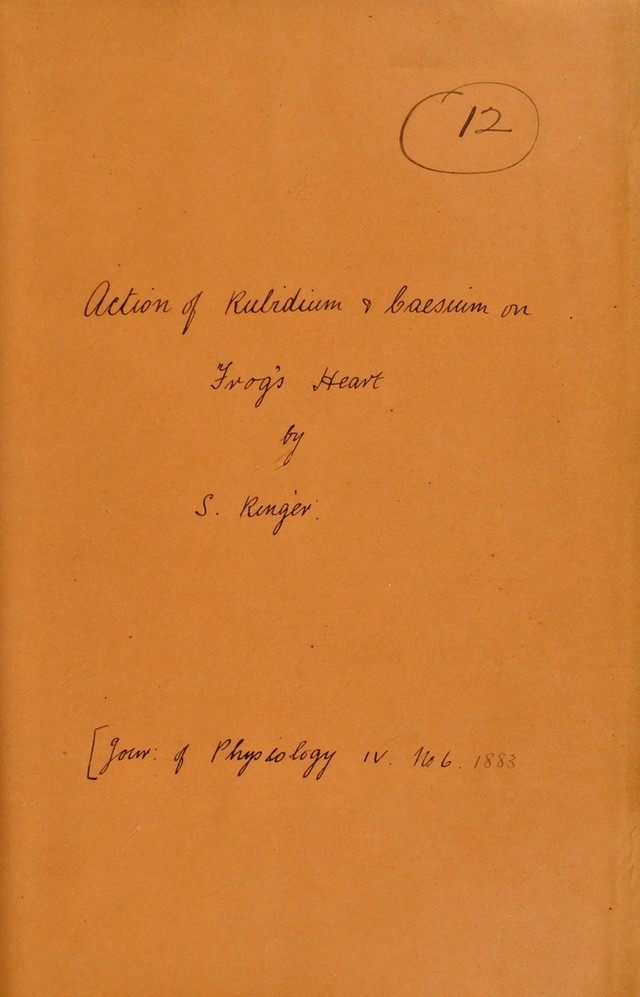 12
Action of Rubidium & Caesium on
Frog's Heart
by
S. Ringer.
[Jour: of Physiology IV. No 6. 1883